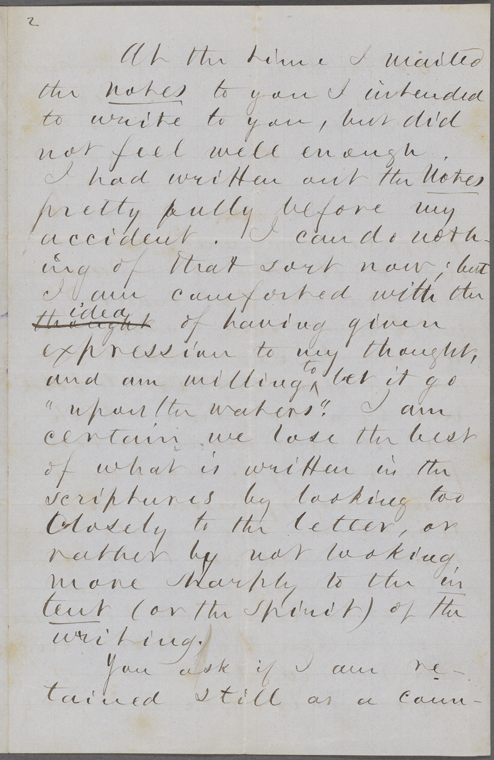 2
At the time I mailed
the notes to you I intended
to write to you, but did
not feel well enough.
I had written out the Notes
pretty fully before my
accident. I can do noth-
ing of that sort now; but
I am comforted with the
thought idea of having given
expression to my thought,
and am willing to let it go
"upon the waters". I am
certain we lose the best
of what is written in the
scriptures by looking too
closely to the letter, or
rather by not looking
more sharply to the in
tent (or the spirit) of the
writing.
You ask if I am re-
tained still as a coun-